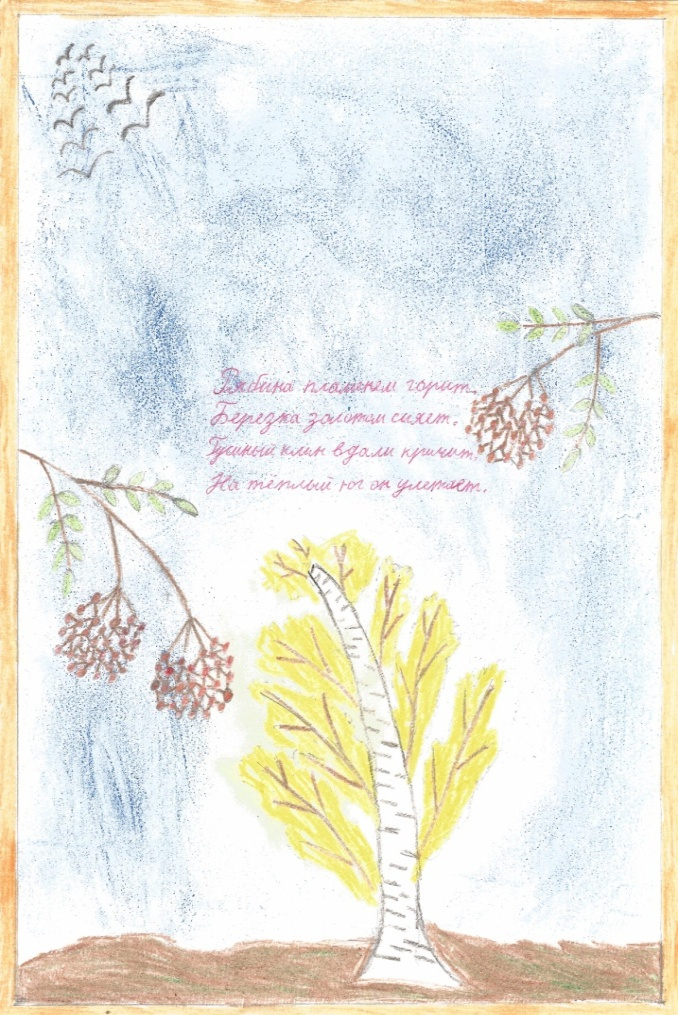 Рябина пламенем горит.
Березка золотом сияет.
Гусиный клин вдали кричит.
На тёплый юг он улетает.